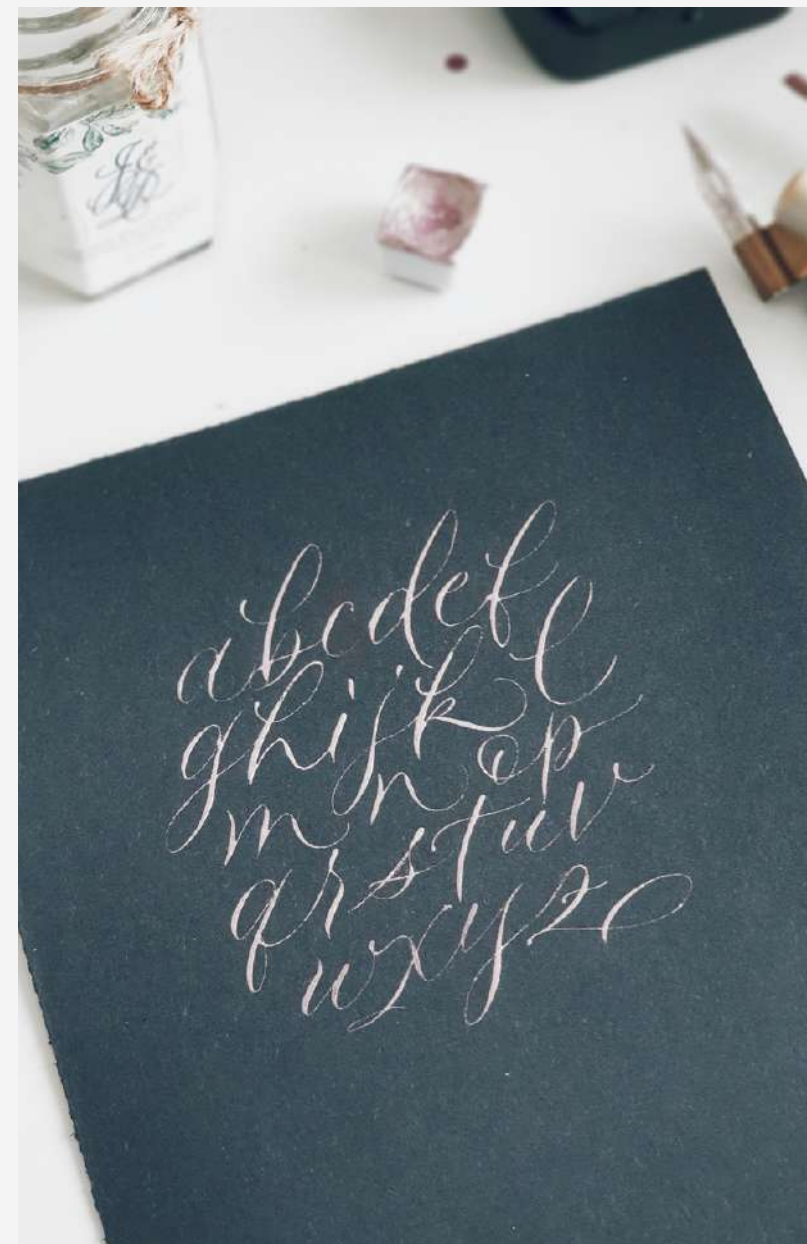 abcdef
ghijkl
mnop
qrstuv
wxyz